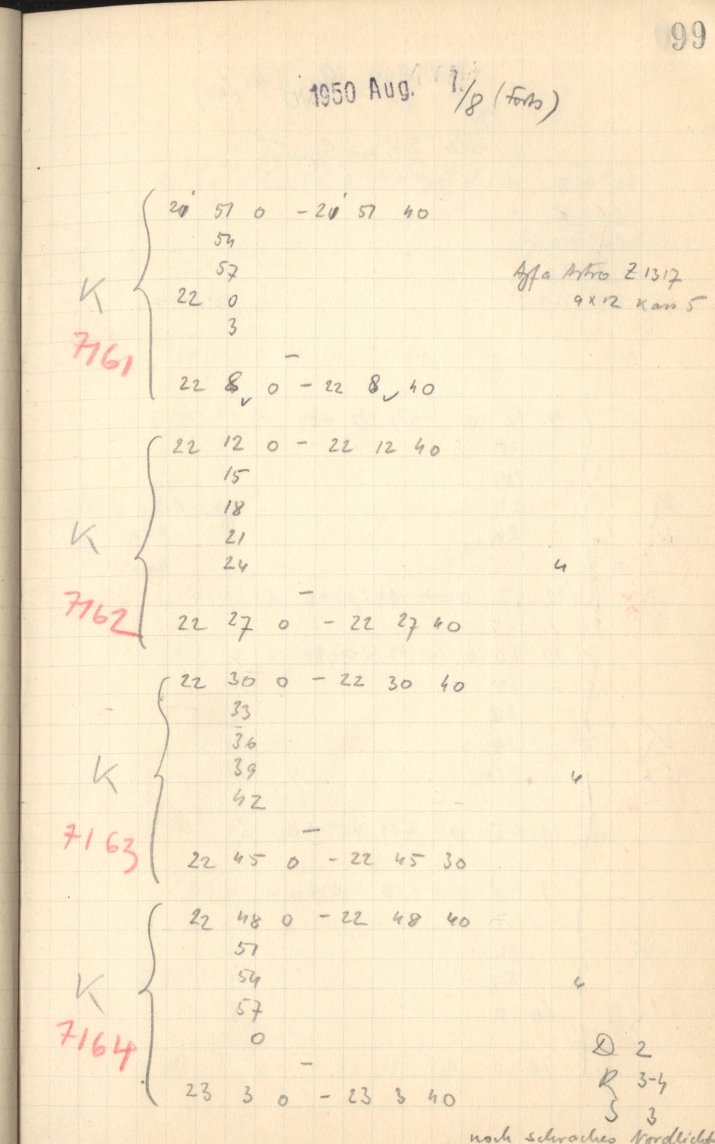 99
1950 Aug. 7./8 (Forts)
21 51 0 - 21 51 40
54
57 Agfa Astro Z 1317
22 0 9x12 Kass 5
3
K 7161
—
22 8 0 - 22 8 40
22 12 0 - 22 12 40
15
18
21
24 "
K 7162
—
22 27 0 - 22 27 40
22 30 0 - 22 30 40
33
36
39 "
42
K 7163
—
22 45 0 - 22 45 30
22 48 0 - 22 48 40
51
54 "
57
0
K 7164
—
23 3 0 - 23 3 40
D 2
R 3-4
S 3
noch schwaches Nordlicht